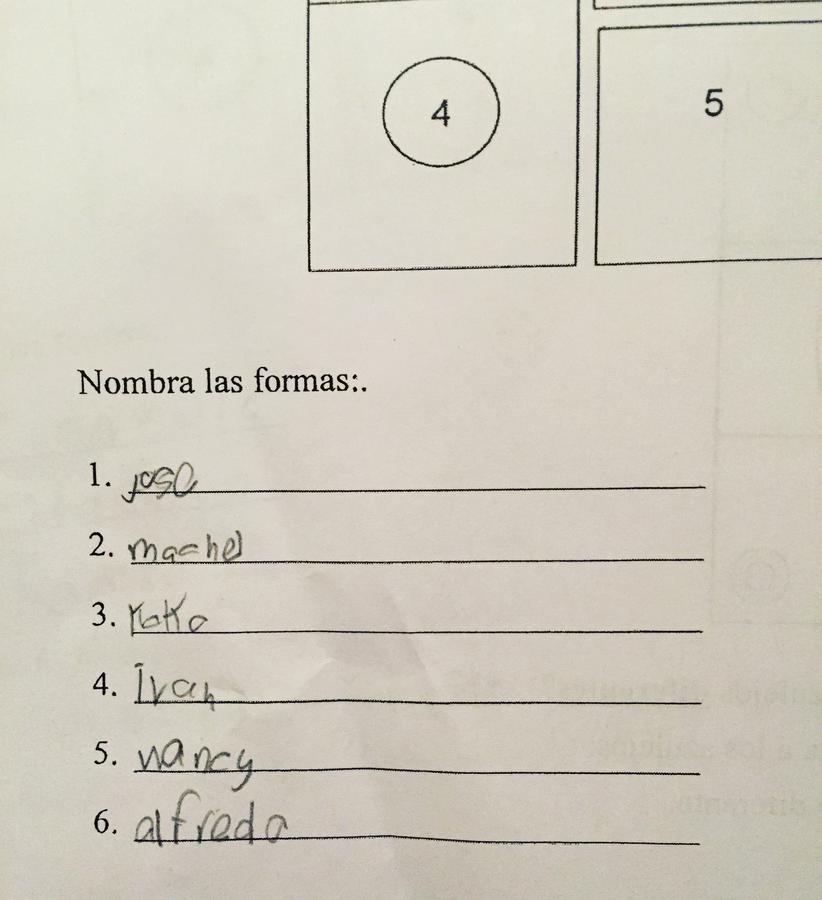 4
5
Nombra las formas:.
1. jose
2. machel
3.
4. Ivan
5. nancy
6. alfredo